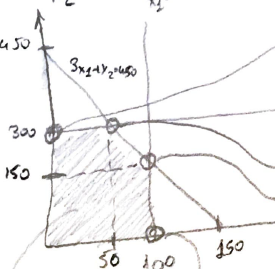 x₁
450
3x₁+x₂=450
300
150
50 100 150